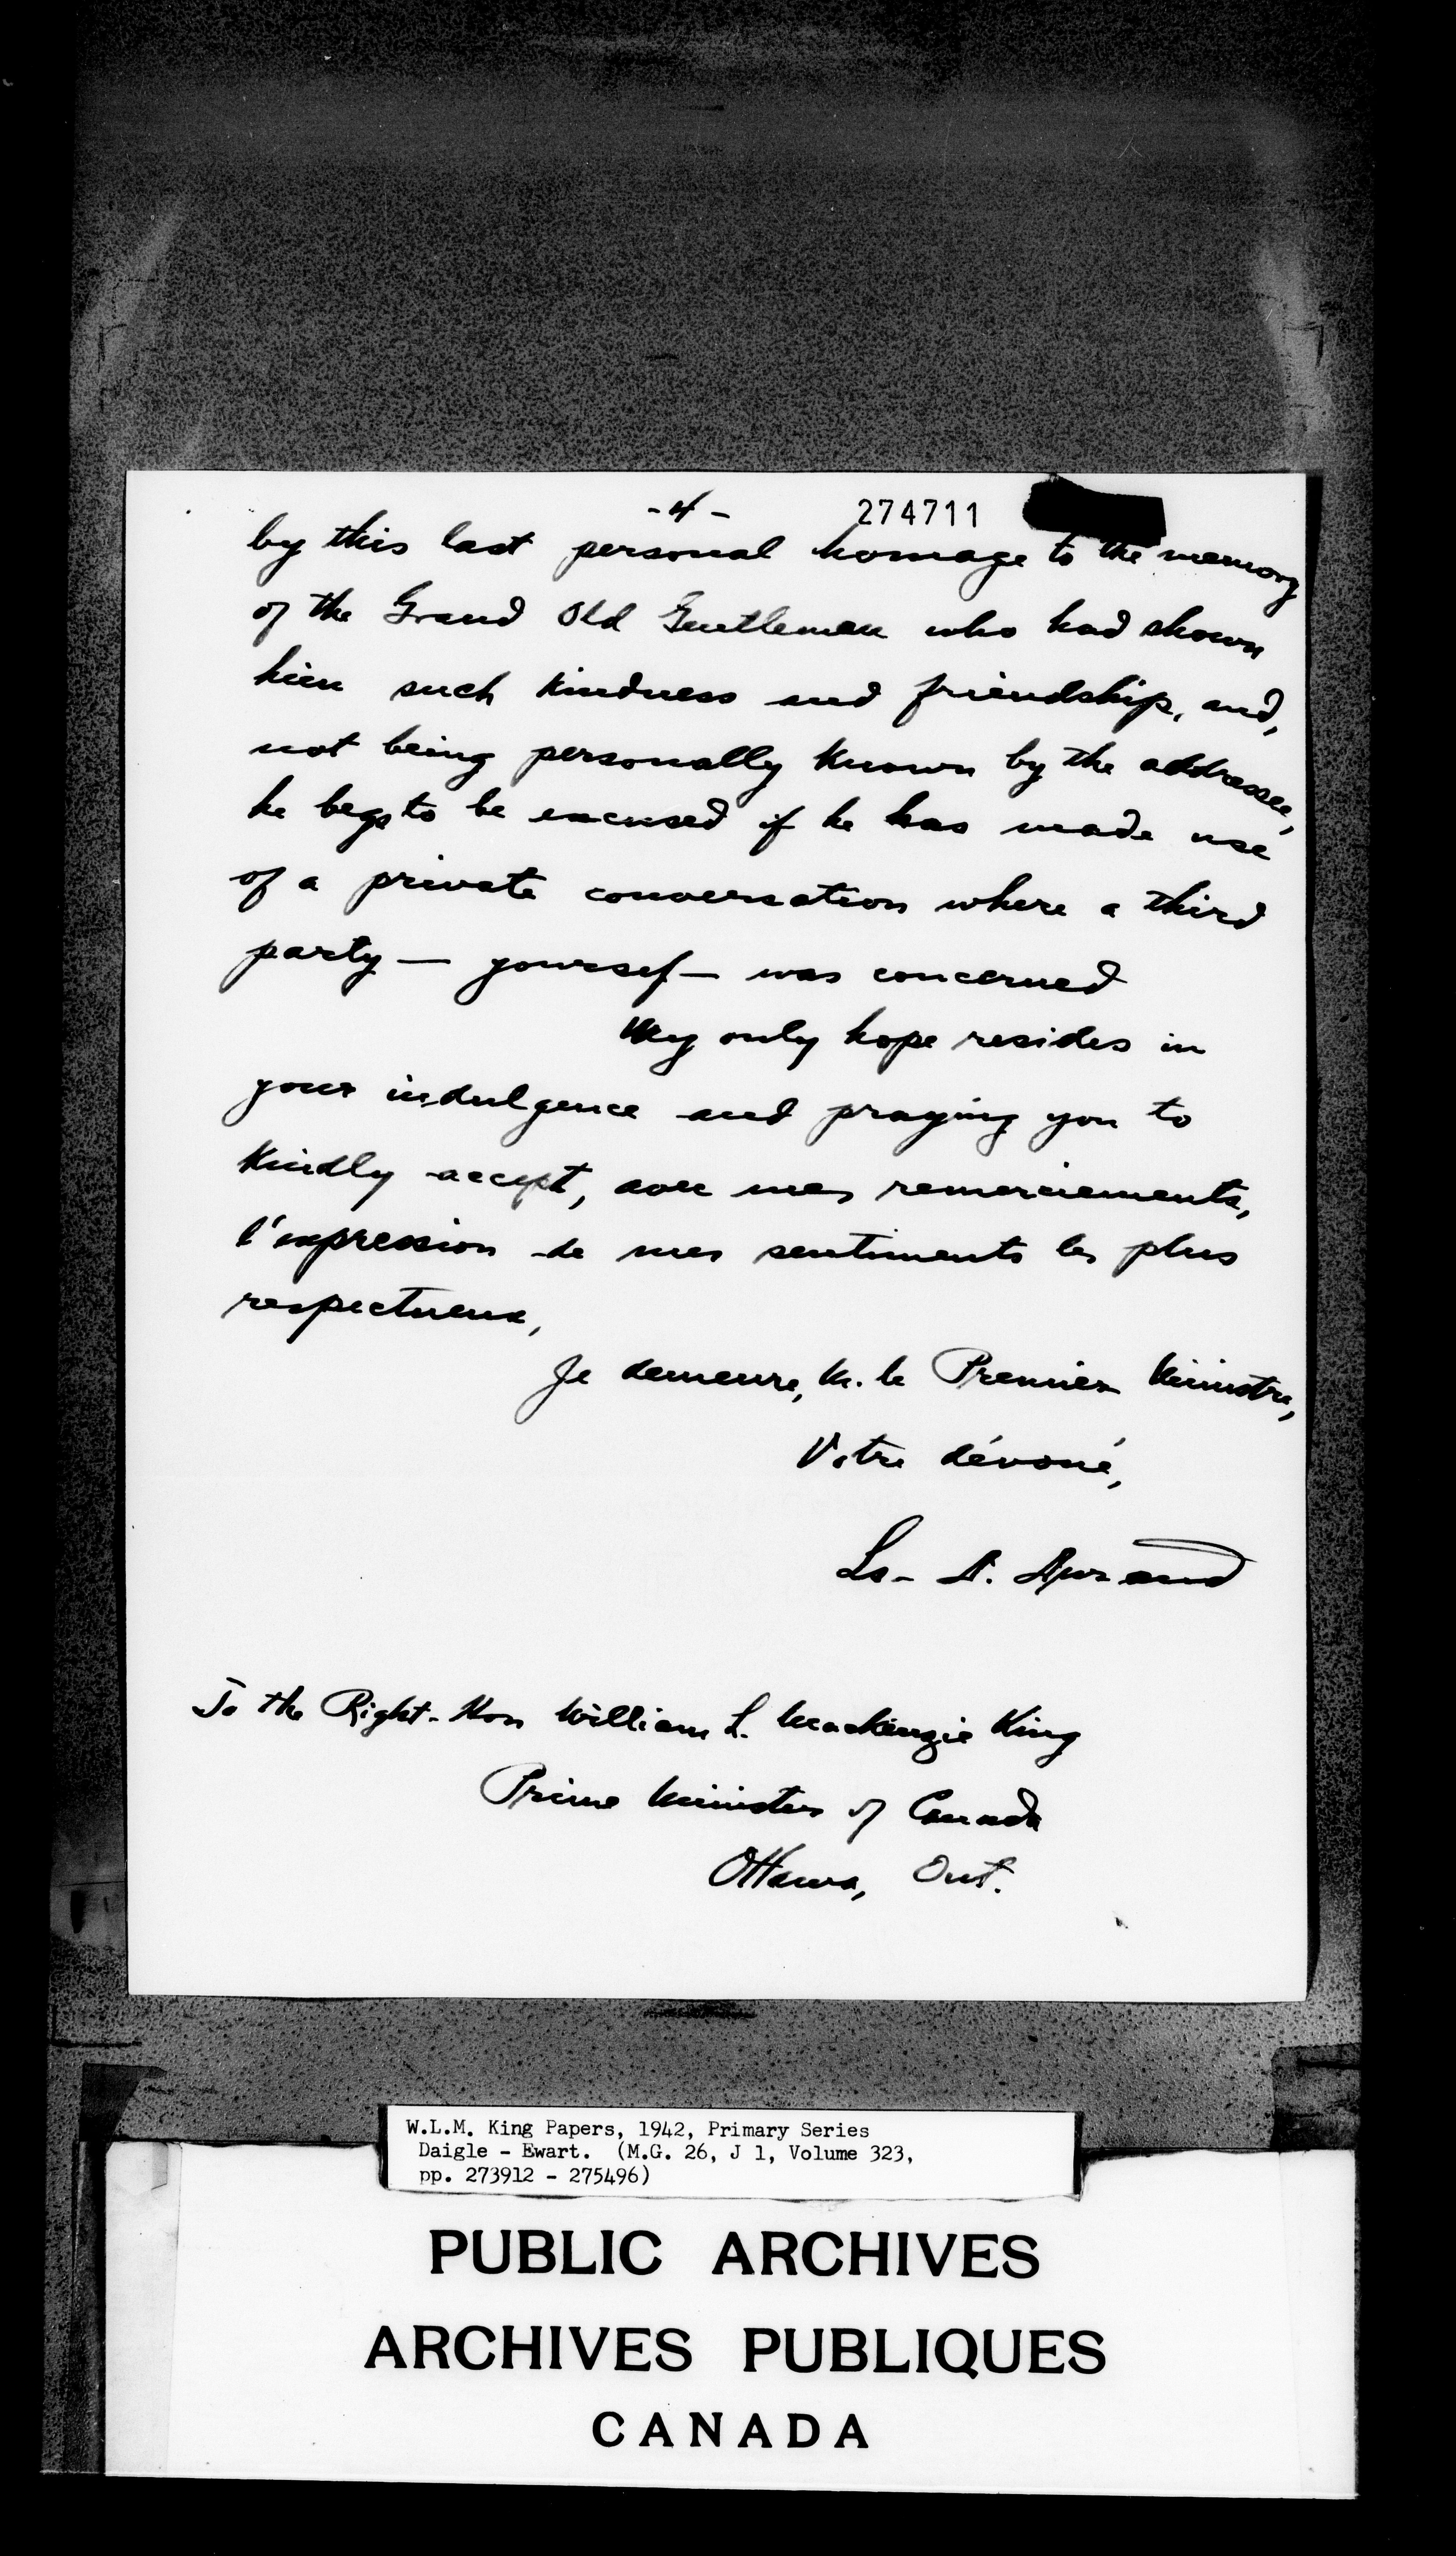 -4-
274711
by this last personal homage to the memory
of the Grand Old Gentleman who had shown
him such kindness and friendship, and,
not being personally known by the addressee,
he begs to be excused if he has made use
of a private conversation where a third
party — yourself — was concerned
My only hope resides in
your indulgence and praying you to
kindly accept, avec mes remerciements,
l'expression de mes sentiments les plus
respectueux,
Je demeure, M. le Premier Ministre,
Votre dévoué,
Ls- A. Durand
To the Right-Hon William L. Mackenzie King
Prime Minister of Canada
Ottawa, Ont.
W.L.M. King Papers, 1942, Primary Series
Daigle - Ewart. (M.G. 26, J 1, Volume 323,
pp. 273912 - 275496)
PUBLIC ARCHIVES
ARCHIVES PUBLIQUES
CANADA